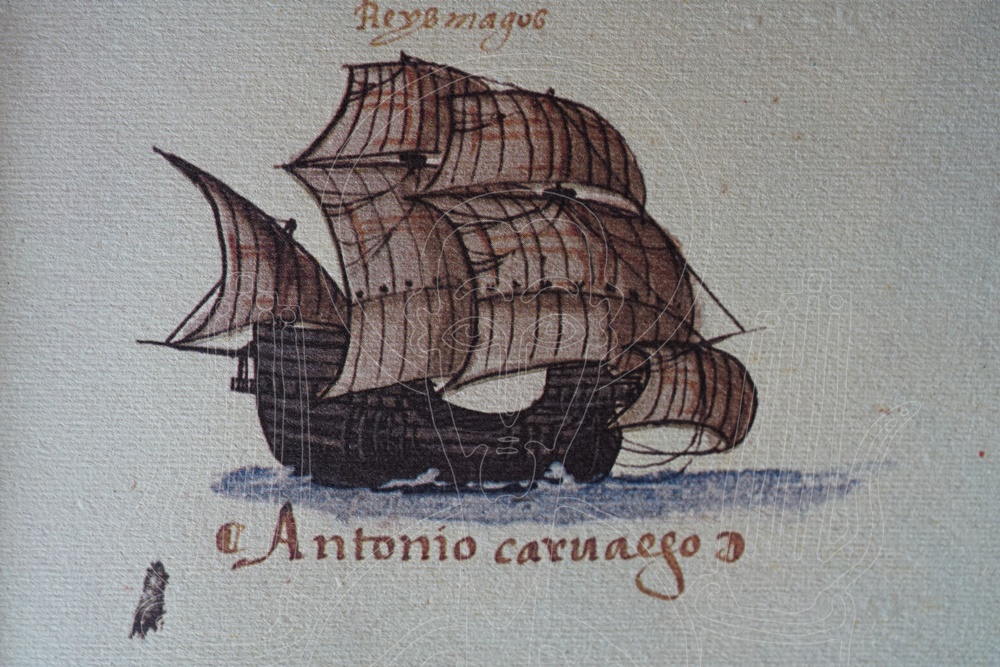 Reys magos
Antonio caruaego